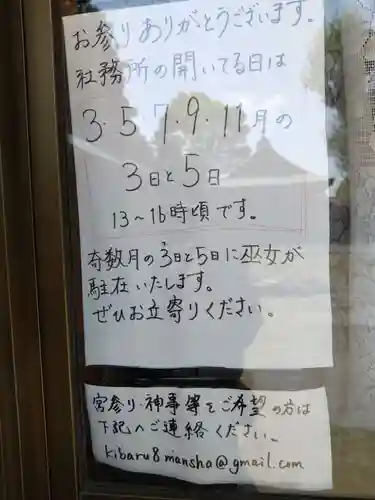 お参りありがとうございます。
社務所の開いてる日は
3・5・7・9・11月の
3日と5日
13〜16時頃です。
奇数月の3日と5日に巫女が
駐在いたします。
ぜひお立寄りください。
宮参り・神事等をご希望の方は
下記へご連絡ください。
kibaru8mansha@gmail.com